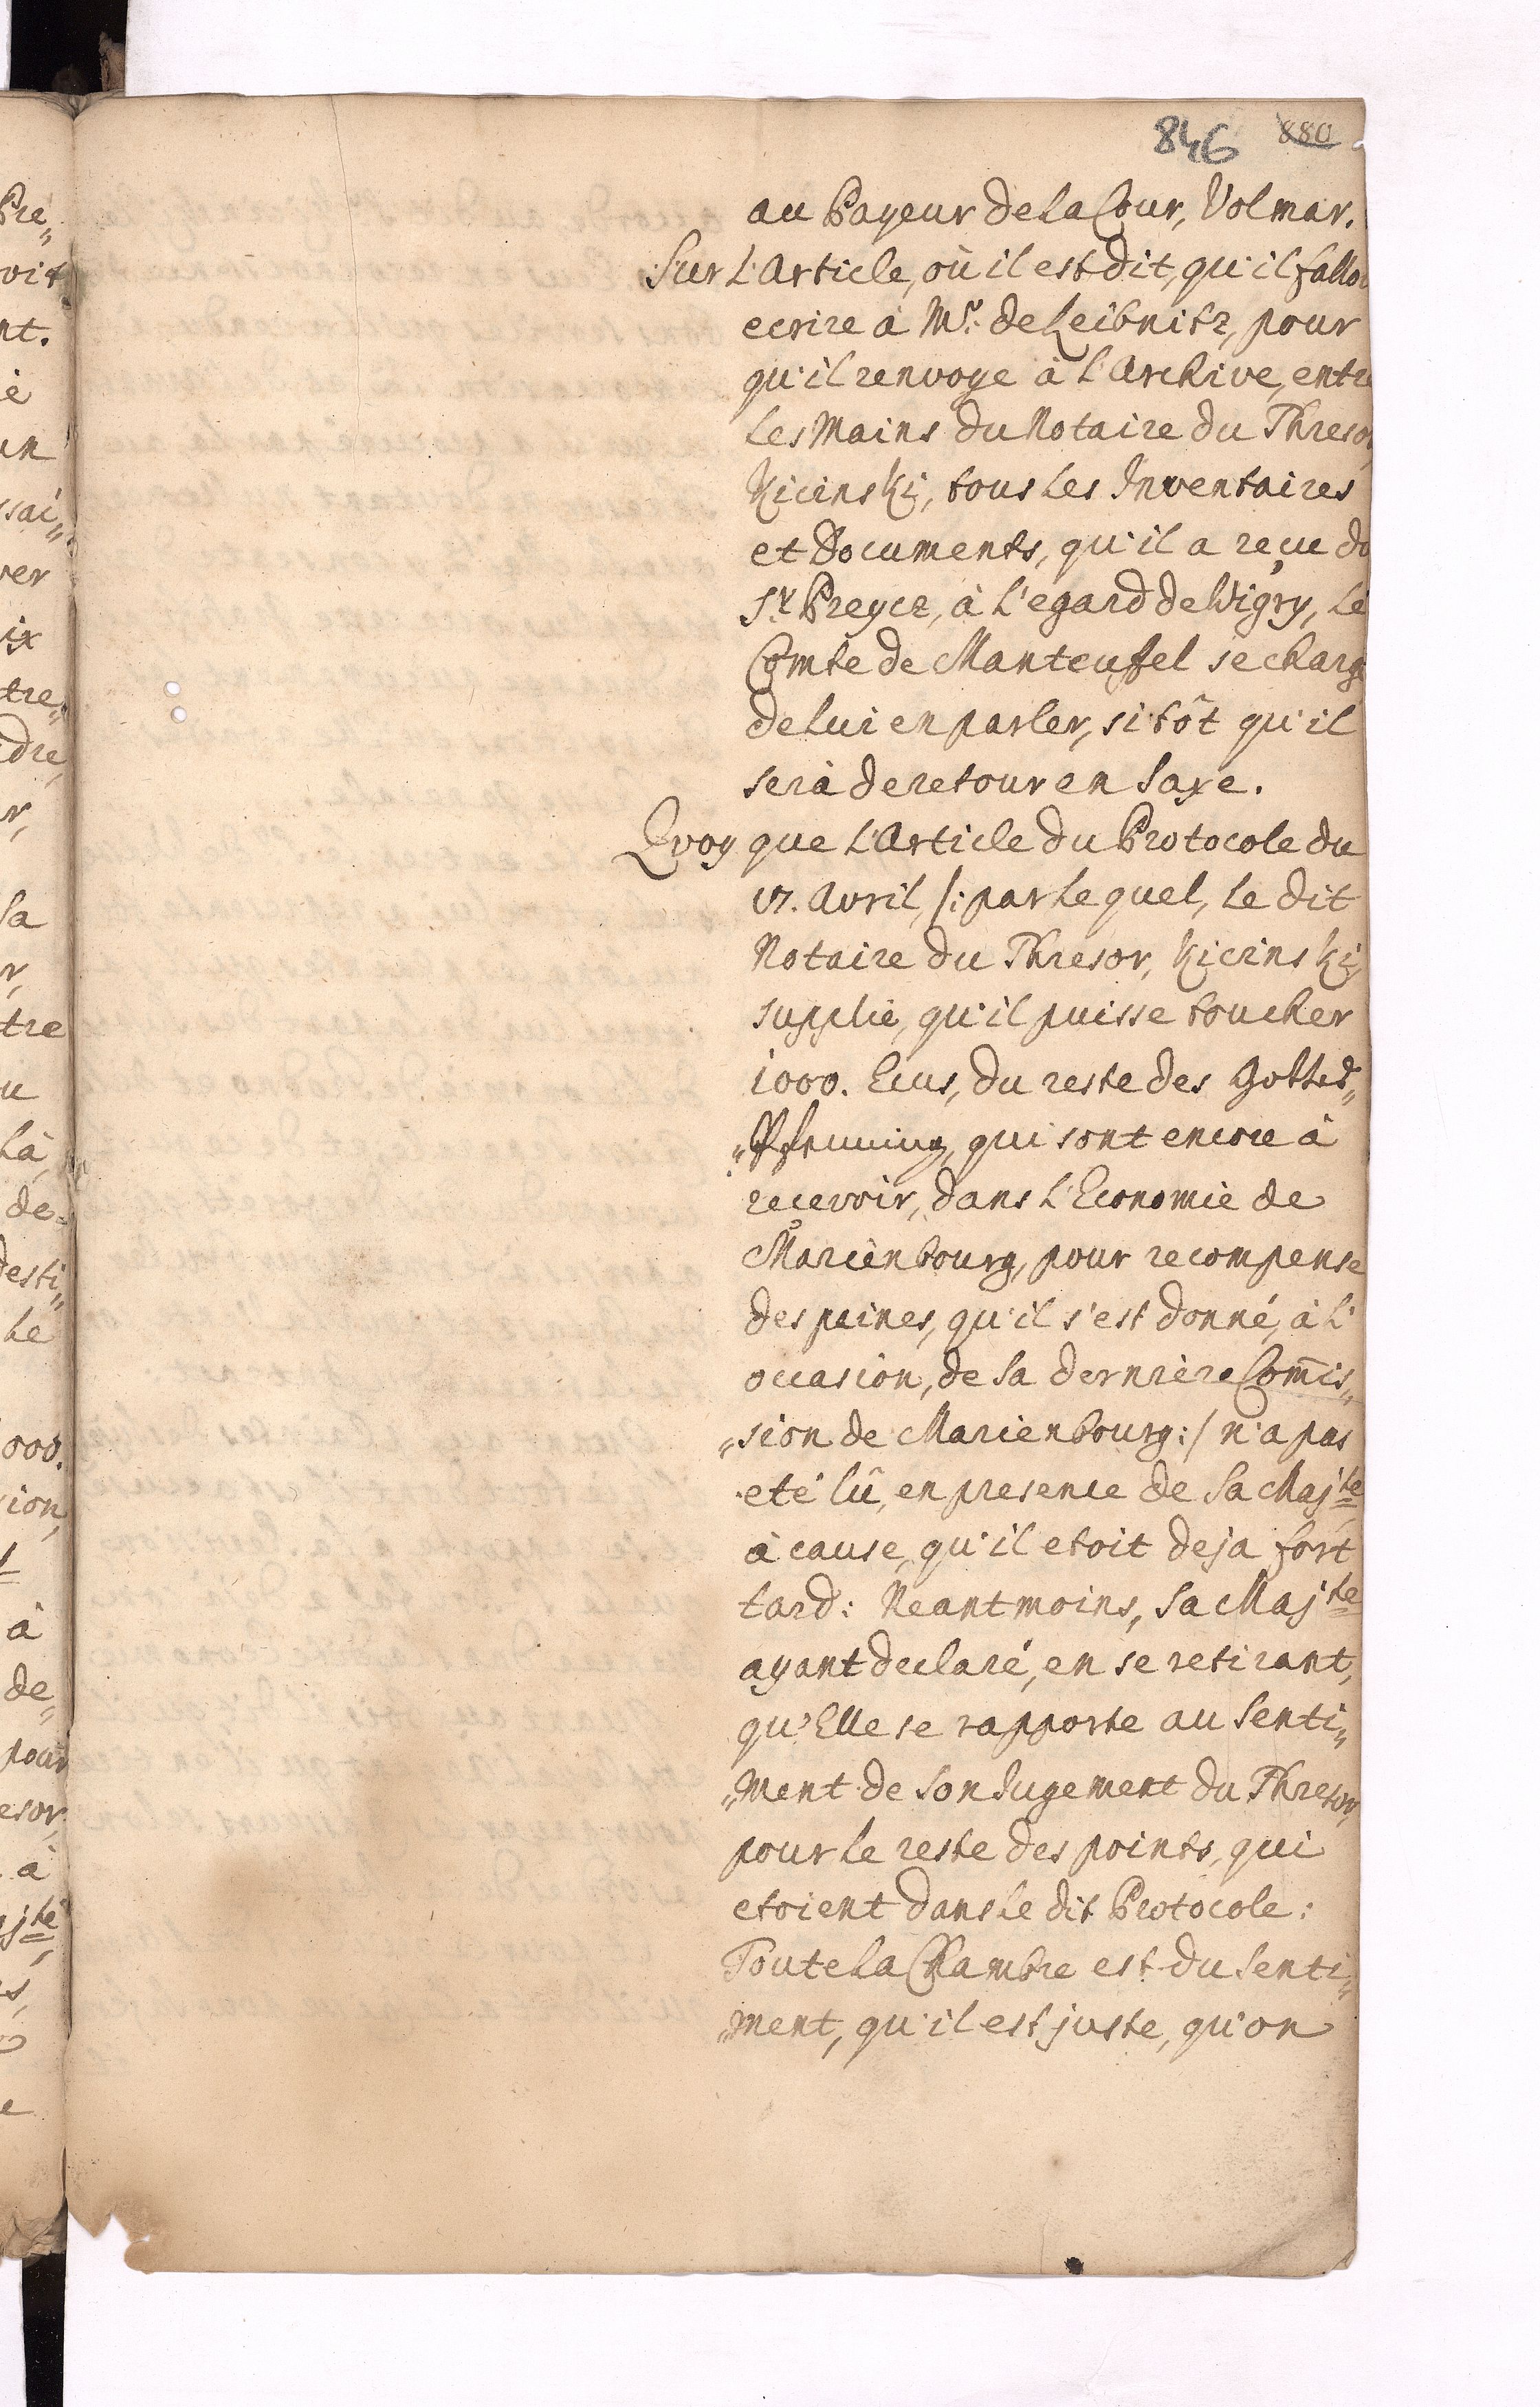 846 880
au Payeur de la Cour, Volmar.
Sur L'Article, où il est dit, qu'il falloi
ecrire à Mr: de Leibnitz, pour
qu'il renvoye à l'Archive, entre
les Mains du Notaire du Thresor,
Kicinski, tous les Inventaires
et Documents, qu'il a reçue du
Sr. Preycz, à l'egard de Wigry, Le
Comte de Manteufel se charge
de lui en parler, sitôt qu'il
serà de retour en Saxe.
Qvoy que L'Article du Protocole du
17. Avril, /: par le quel, le dit
Notaire du Thresor, Kicinski,
supplie, qu'il puisse toucher
1000. Ecus, du reste des Gottes„
„Pfenning, qui sont encore à
recevoir, dans l'Economie de
Marienbourg, pour recompense
des peines, qu'il s'est donné, à l'
occasion, de sa dernière Com̄is„
„sion de Marienbourg :/ n'a pas
eté lû, en presence de Sa Majté
à cause, qu'il etoit deja fort
tard: Neantmoins, Sa Majté
ayant declaré, en se retirant,
qu'Elle se rapporte au Senti„
„ment de Son Jugement du Thresor,
pour le reste des points, qui
etoient dans le dit Protocole:
Toute la Chambre est du Senti„
„ment, qu'il est juste, qu'on
Pre„
voit
nt.
è
un
ssai„
ver
ix
tre„
dre,
r,
Sa
r,
tre
u
là,
de=
desti„
Le
000.
ion,
à
de„
pour
esor,
à
jté
s,
e